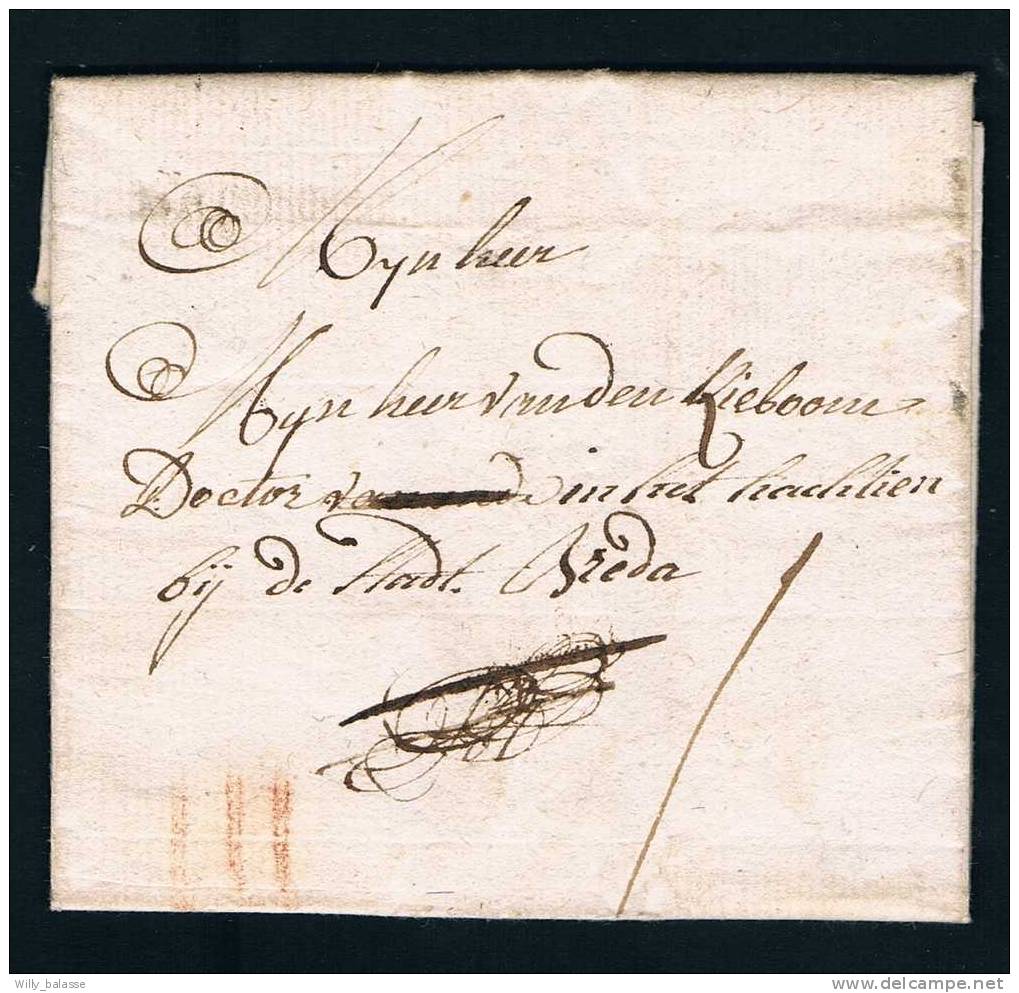 Mijn heer
Mijn heer van den Kieboom
Doctor in het hachtien
bij de stadt Breda
Willy_balasse
delcampe.net